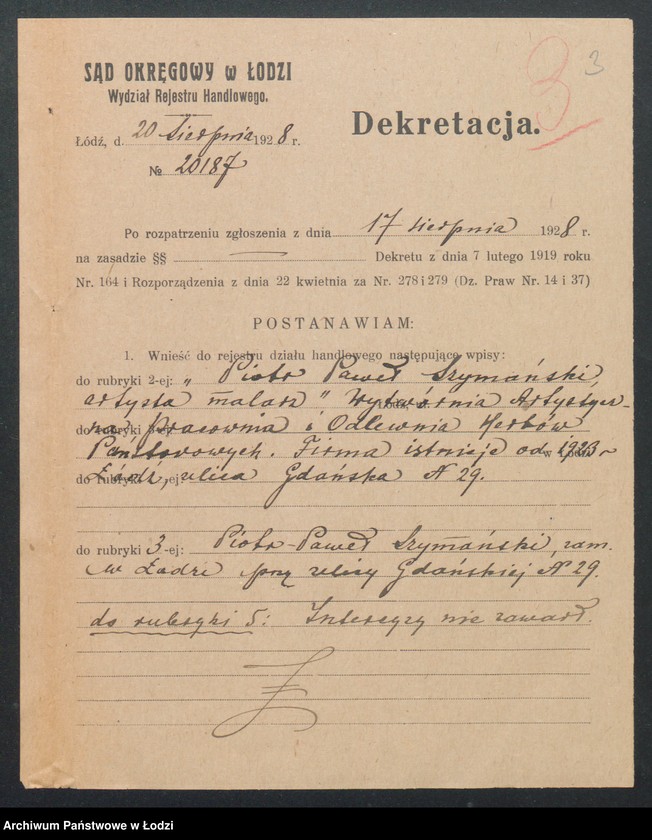 3
3
SĄD OKRĘGOWY w ŁODZI
Wydział Rejestru Handlowego.
Dekretacja.
Łódź, d. 20 Sierpnia 1928 r.
№ 20187
Po rozpatrzeniu zgłoszenia z dnia 17 sierpnia 1928 r.
na zasadzie §§ — Dekretu z dnia 7 lutego 1919 roku
Nr. 164 i Rozporządzenia z dnia 22 kwietnia za Nr. 278 i 279 (Dz. Praw Nr. 14 i 37)
POSTANAWIAM:
1. Wnieść do rejestru działu handlowego następujące wpisy:
do rubryki 2-ej: „Piotr Paweł Szymański,
artysta malarz" Wytwórnia Artystycz-
na Pracownia i Odlewnia Herbów
Państwowych. Firma istnieje od 1923 r
do rubryki -ej Łódź, ulica Gdańska N 29.
do rubryki 3-ej: Piotr-Paweł Szymański, zam.
w Łodzi przy ulicy Gdańskiej N 29.
do rubryki 5: Intercyzy nie zawarł.
Archiwum Państwowe w Łodzi